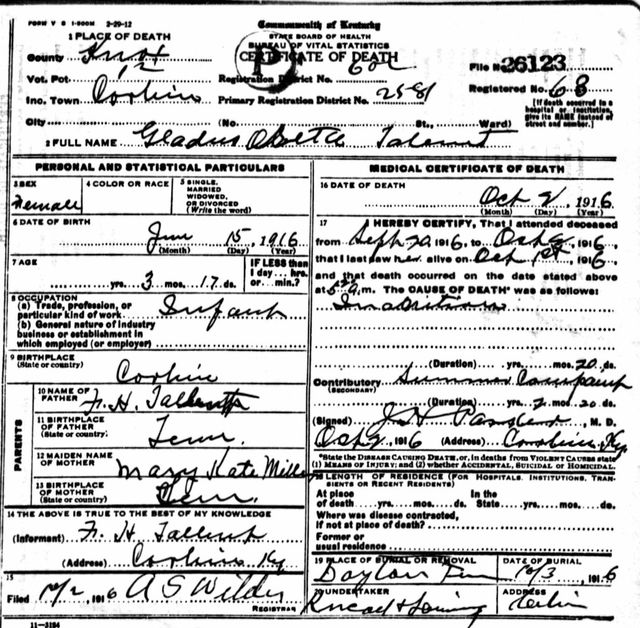 FORM V S 1-500M 2-29-12
Commonwealth of Kentucky
STATE BOARD OF HEALTH
BUREAU OF VITAL STATISTICS
CERTIFICATE OF DEATH
1 PLACE OF DEATH
County Knox
Vot. Pct 12
Inc. Town Corbin
City (No. St., Ward)
Registration District No. 602
Primary Registration District No. 2581
File No. 26123
Registered No. 68
[If death occurred in a hospital or institution, give its NAME instead of street and number.]
2 FULL NAME Gladus Talent
PERSONAL AND STATISTICAL PARTICULARS
3 SEX Femall
4 COLOR OR RACE
5 SINGLE, MARRIED WIDOWED, OR DIVORCED (Write the word)
6 DATE OF BIRTH
Jun 15, 1916
(Month) (Day) (Year)
7 AGE
yrs. 3 mos. 17 ds.
IF LESS than 1 day... hrs. or min.?
8 OCCUPATION
(a) Trade, profession, or particular kind of work Infant
(b) General nature of industry business or establishment in which employed (or employer)
9 BIRTHPLACE
(State or country)
Corbin
PARENTS
10 NAME OF FATHER F. H. Tallent
11 BIRTHPLACE OF FATHER (State or country) Tenn.
12 MAIDEN NAME OF MOTHER Mary Kate Miller
13 BIRTHPLACE OF MOTHER (State or country) Tenn.
14 THE ABOVE IS TRUE TO THE BEST OF MY KNOWLEDGE
(Informant) F. H. Tallent
(Address) Corbin Ky
15
Filed 10/2, 1916 A S Wilder
REGISTRAR
11-3184
MEDICAL CERTIFICATE OF DEATH
16 DATE OF DEATH
Oct 2, 1916
(Month) (Day) (Year)
17 I HEREBY CERTIFY, That I attended deceased
from Sept 20 1916, to Oct 2 1916,
that I last saw her alive on Oct 1st, 1916
and that death occurred on the date stated above
at m. The CAUSE OF DEATH* was as follows:
Inanition
(Duration) yrs. mos. 20 ds.
Contributory Summer
(SECONDARY)
(Duration) yrs. 2 mos. 20 ds.
(Signed) M. D.
Oct 2, 1916 (Address) Corbin, Ky.
*State the DISEASE CAUSING DEATH, or, in deaths from VIOLENT CAUSES state (1) MEANS OF INJURY; and (2) whether ACCIDENTAL, SUICIDAL OR HOMICIDAL.
LENGTH OF RESIDENCE (FOR HOSPITALS, INSTITUTIONS, TRANSIENTS OR RECENT RESIDENTS)
At place of death yrs. mos. ds. In the State yrs. mos. ds.
Where was disease contracted, if not at place of death?
Former or usual residence
19 PLACE OF BURIAL OR REMOVAL
Dayton
DATE OF BURIAL
10/3, 1916
20 UNDERTAKER
ADDRESS
Corbin